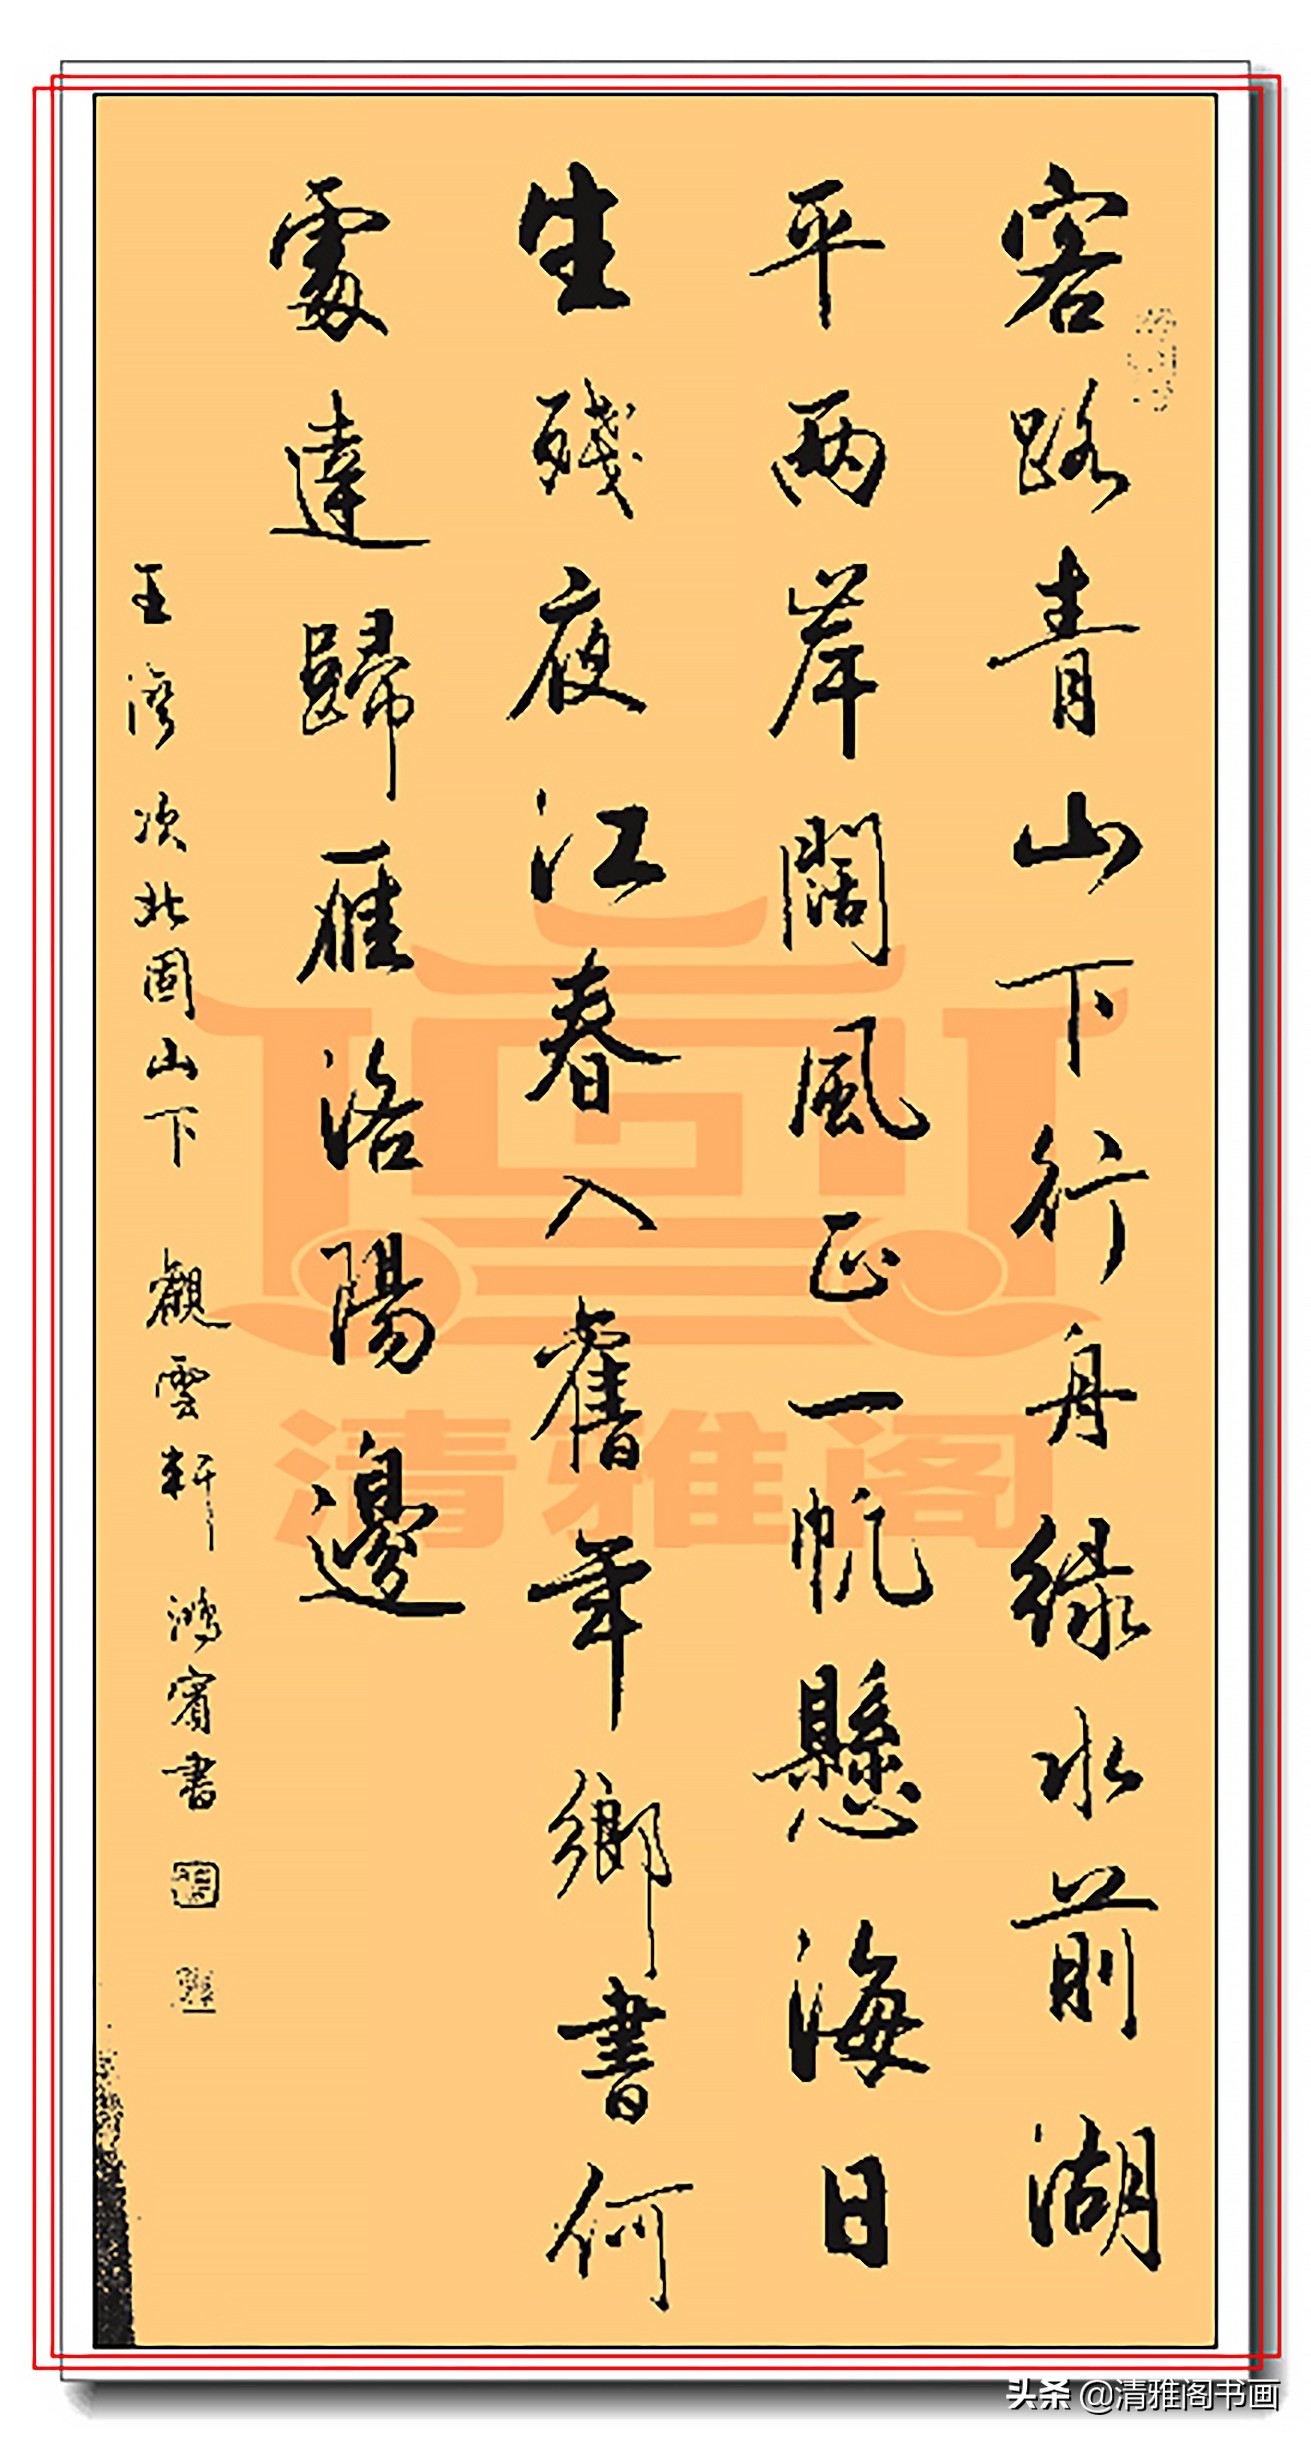 客路青山下行舟緑水前湖
平两岸闊風正一帆懸海日
生残夜江春入舊年鄉書何
處達歸雁洛陽邊
王湾次北固山下 觀雲軒 鴻賓書
清雅阁
头条 @清雅阁书画